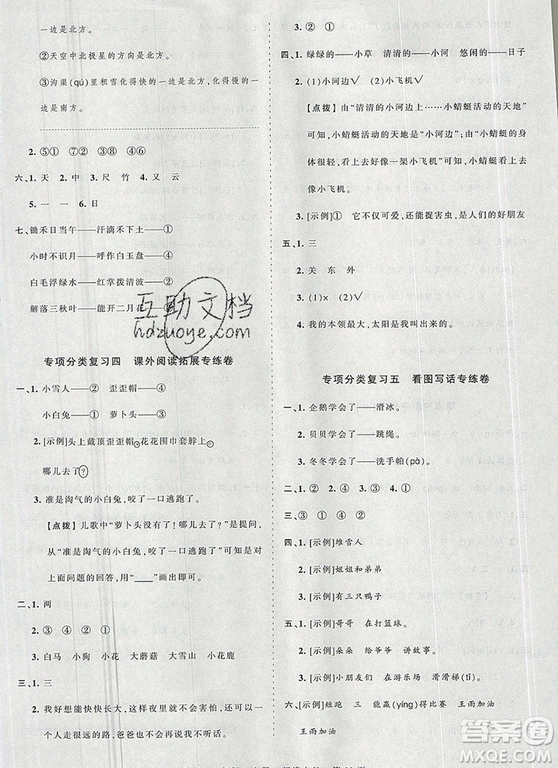 一边是北方。
②天空中北极星的方向是北方。
③沟渠(qú)里积雪化得快的一边是北方,化得慢的
一边是南方。
2. ⑤① ②⑦ ④③ ⑧⑥
六、1. 天 2. 中 3. 尺 竹 4. 又 云
5. 一 一 6. 日
七、锄禾日当午——汗滴禾下土——①
小时不识月——呼作白玉盘——④
白毛浮绿水——红掌拨清波——②
解落三秋叶——能开二月花——
互助文档
hdzuoye.com
专项分类复习四 课外阅读拓展专练卷
一、1. 小雪人——歪歪帽——①
小白兔——萝卜头——②
2. [示例]头上戴顶歪歪帽 花花围巾套脖子
哪儿去了?
3. 准是淘气的小白兔,咬了一口逃跑了。
【点拨】儿歌中“萝卜头没有了?哪儿去了?”是
问句,“准是淘气的小白兔,咬了一口逃跑了”是对
上面问题的回答,因此用“____”画出即可。
二、1. 两
2. ③ ④ ② ①
3. 白鹿 小狗 小花 大蘑菇 大雪山 小花鹿
三、1. 三
2. 我好想能快快长大,大家一起玩,比一个人玩更
快乐。/我不想快快长大,爸爸妈妈没时间陪我,一
个人走路的感觉太孤单。
3. ② ①
四、1. 绿绿的——小草 清清的——小河 悠闲的——日子
2. (1)小河边√ (2)小飞机√
【点拨】由“清清的小河边……小蜻蜓活动的天地”
可知,小蜻蜓活动的天地是小河边。由“小蜻蜓的身
体很轻,看上去好像一架小飞机”可知,小蜻蜓看上去
像小飞机。
3. [示例]① 它不仅可爱,还能捉害虫,是人们的好朋友
五、1. 三
2. 关 东 外
3. (1)× (2)√
4. 我的本领最大,太阳是我叫出来的。
专项分类复习五 看图写话专练卷
一、1. 企鹅学会了——滑冰。
2. 贝贝学会了——跳绳。
3. 冬冬学会了——洗手帕(pà)。
二、1. ② ④ 2. ① ④
三、③ ① ② ④
四、1. [示例]堆雪人
2. [示例]姐姐和弟弟
3. [示例]有三只鸭子
五、1. [示例]哥哥 在 打篮球。
2. [示例]朵朵 给爷爷 讲故事。
3. [示例]小朋友们 在游乐场 滑滑梯(tī)。
六、[示例]经跑 三 能赢(yíng)得比赛 王雨加油
王雨加油
答案圈